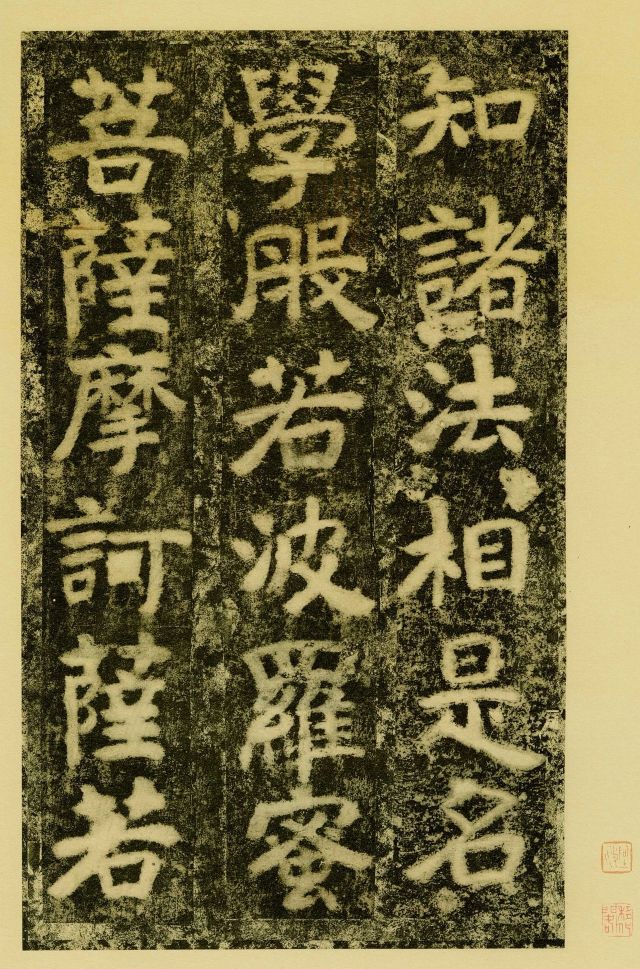 知諸法相是名
學般若波羅蜜
菩薩摩訶薩若